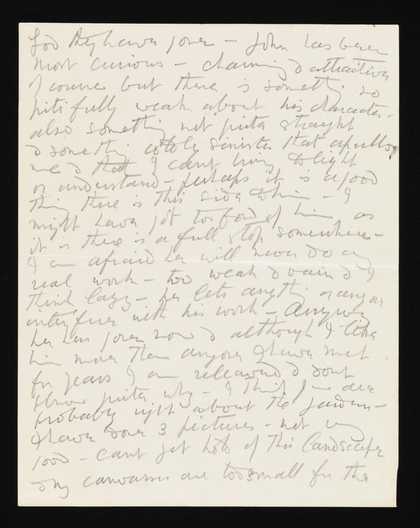 God they have gone – John has been
most curious – charming & attractive
of course but there is something so
pitifully weak about his character –
also something not quite straight
& something utterly sinister that
me & that I can't bring to light
or understand – perhaps it is a good
thing there is this side to him – I
might have got too fond of him as
it is there is a full stop somewhere –
I am afraid he will never do any
real work – too weak & vain & I
think lazy – he lets anything or anyone
interfere with his work – Anyway
he has gone now & although I like
him more than anyone I have met
for years I am relieved & don't
know quite why – I think you are
probably right about the
I have done 3 pictures – not very
good – cant get hold of this landscape
& my canvases are too small for the